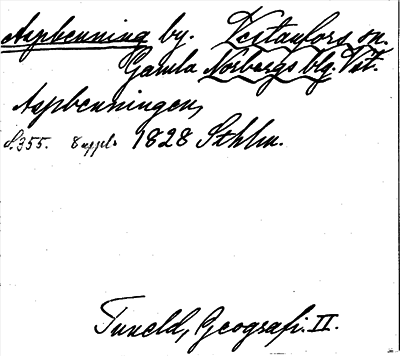 Aspbenning by. Västanfors sn.
Gamla Norbergs blg. Vst.
Aspbenningen,
S. 355. 8 uppl. 1828 Sthlm.
Tuneld, Geografi. II.